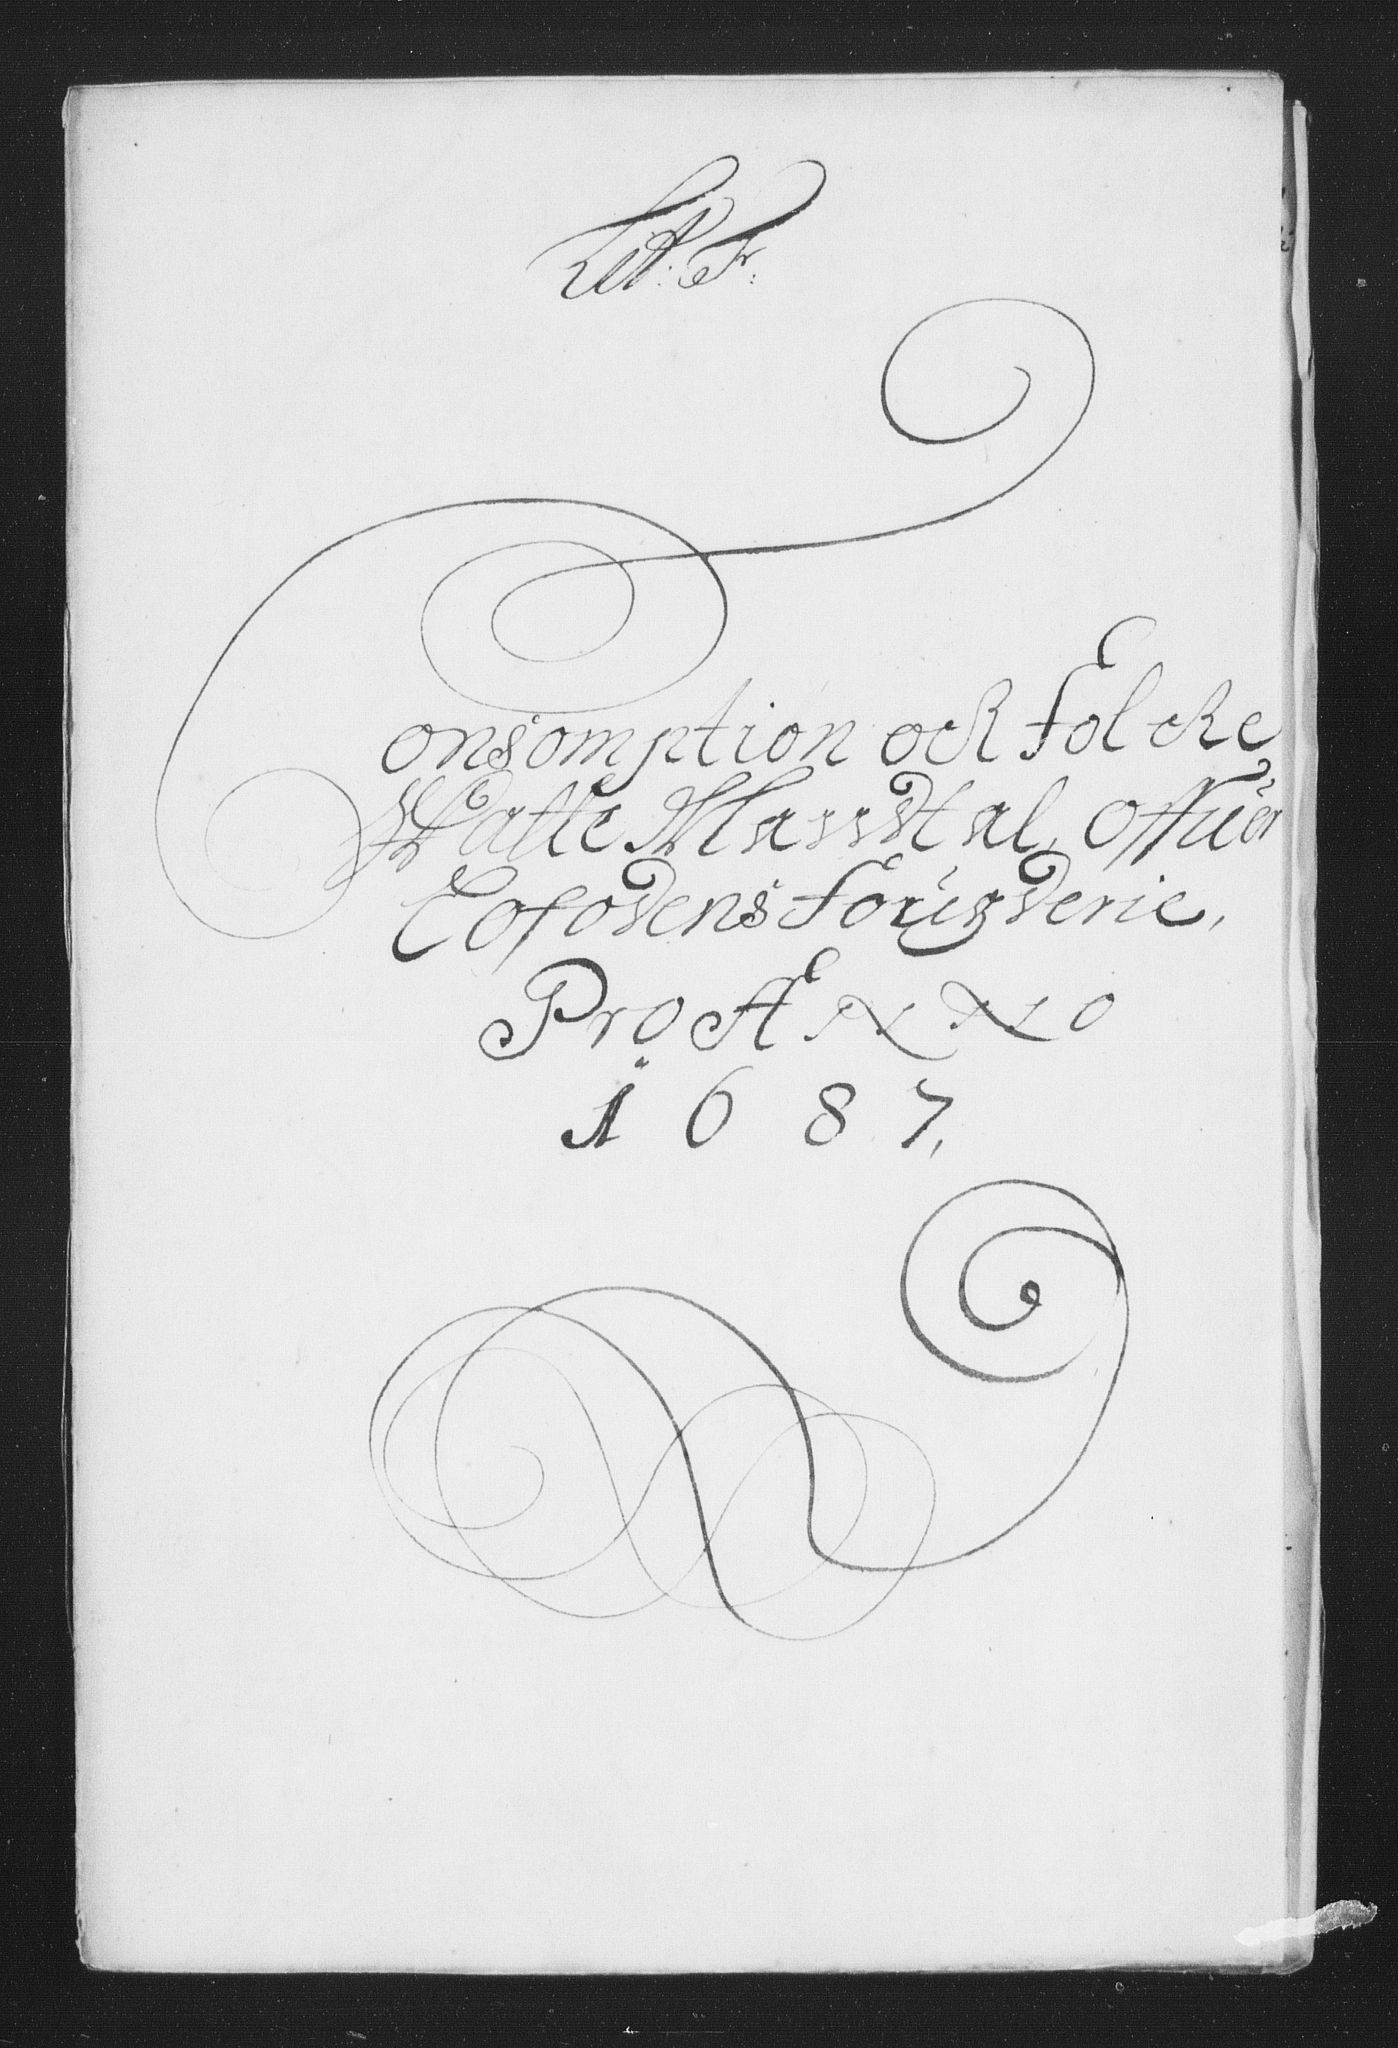 Lit: F:
Consomption och Folcke
Skatte Mandtal, offuer
Lofodens Fougderie,
Pro ANNO
1687,